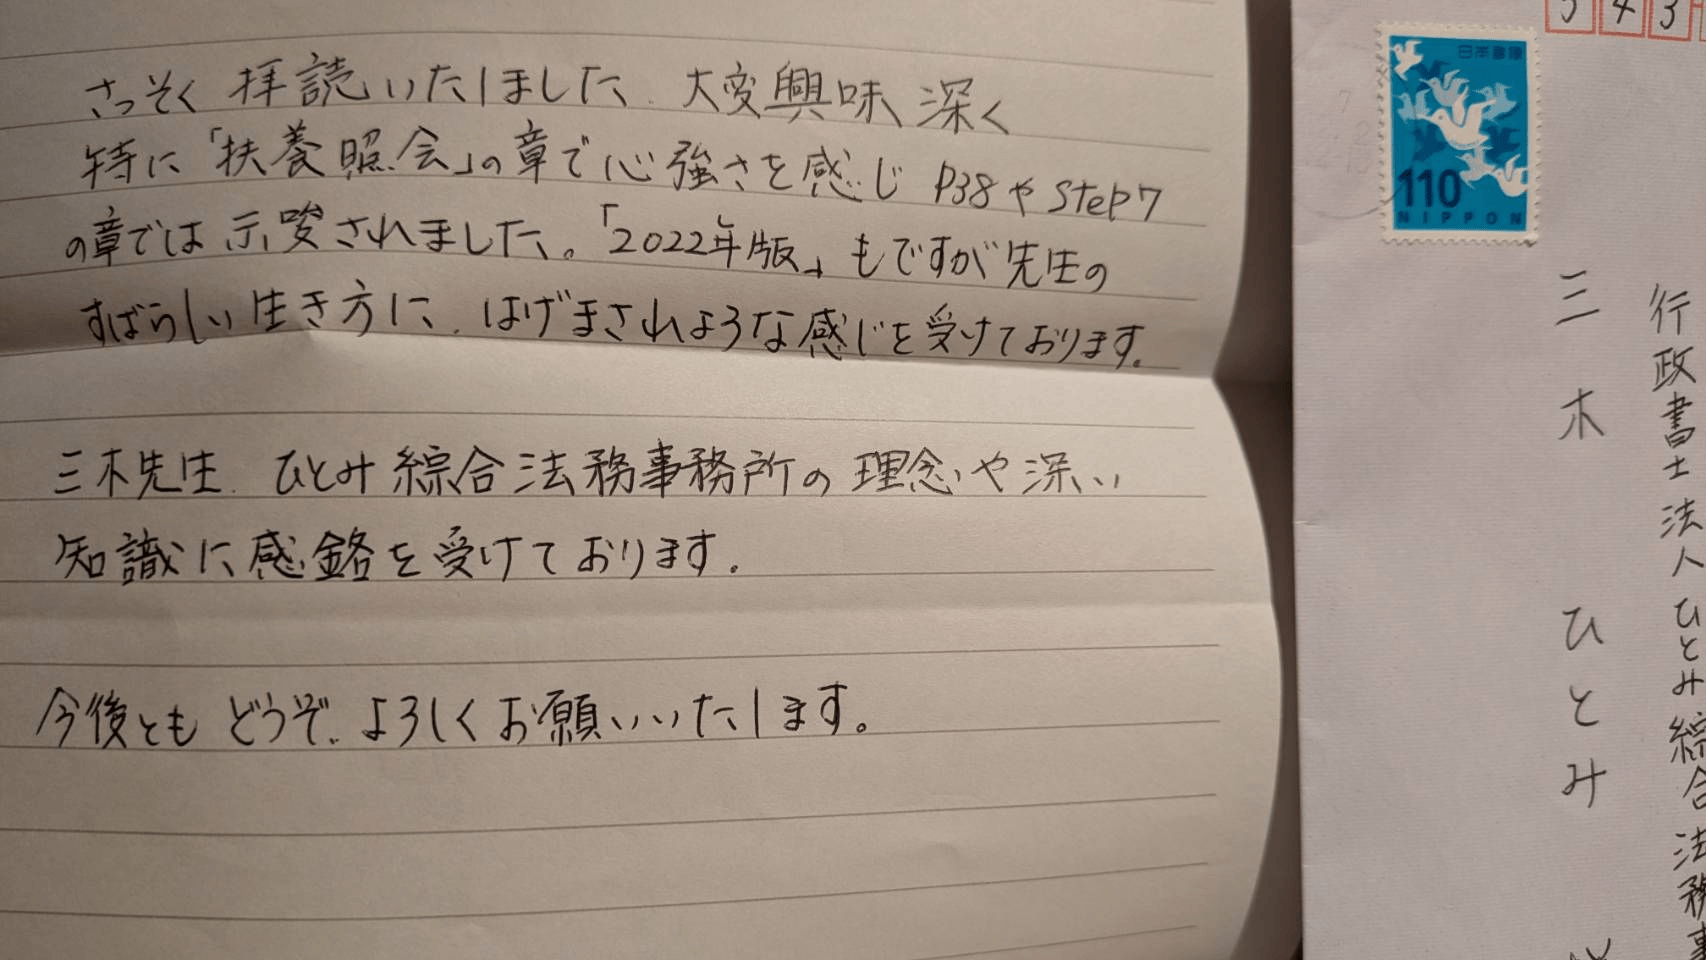 さっそく 拝読いたしました、大変興味深く
特に「扶養照会」の章で心強さを感じ P38や Step7
の章では示唆されました。「2022年版」もですが先生の
すばらしい生き方に、はげまされような感じを受けております。
三木先生、ひとみ綜合法務事務所の理念や深い
知識に感銘を受けております。
今後とも どうぞ、よろしくお願いいたします。
543
日本郵便
110
NIPPON
行政書士法人ひとみ綜合法務事
三木 ひとみ